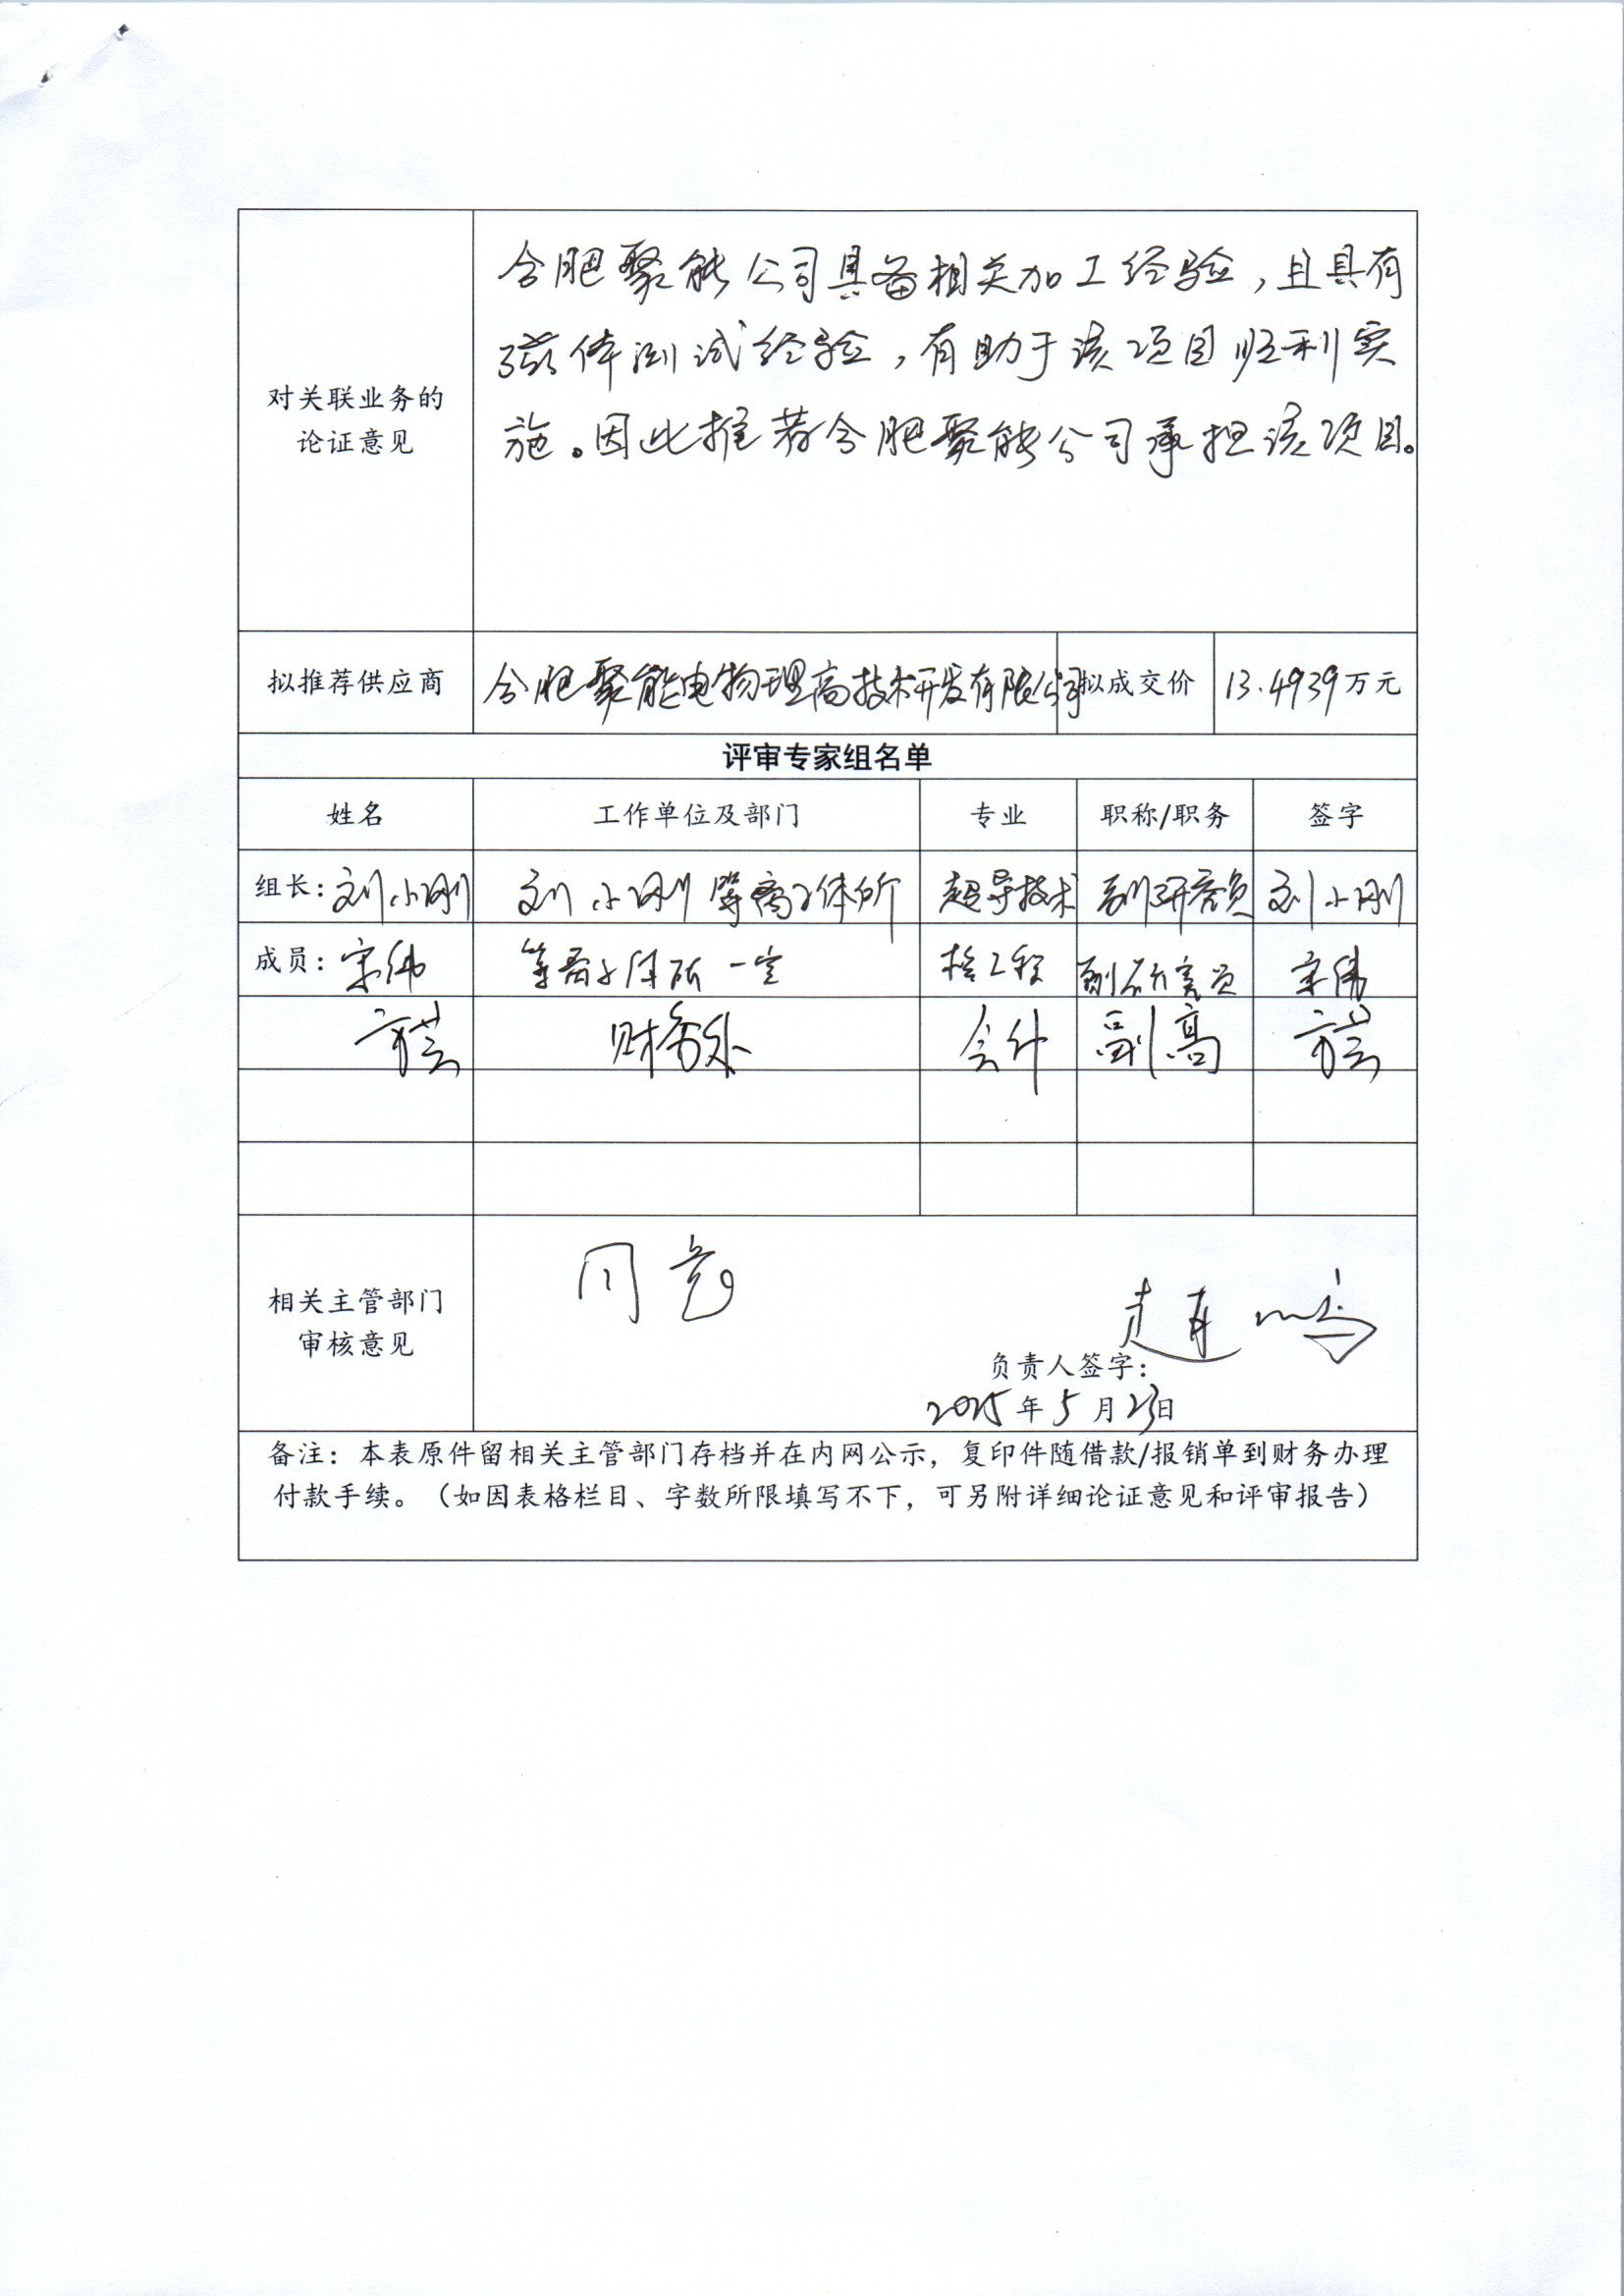 合肥聚能公司具备相关加工经验，且具有
磁体测试经验，有助于该项目顺利实
施。因此推荐合肥聚能公司承担该项目。
对关联业务的
论证意见
拟推荐供应商 合肥聚能电物理高技术开发有限公司 拟成交价 13.4939万元
评审专家组名单
姓名 工作单位及部门 专业 职称/职务 签字
组长：刘小刚 刘小刚 等离子体所 超导技术 副研究员 刘小刚
成员：宋伟 等离子体所 一室 核工程 副研究员 宋伟
财务处 会计 副高
同意
相关主管部门
审核意见
负责人签字：
2025年5月23日
备注：本表原件留相关主管部门存档并在内网公示，复印件随借款/报销单到财务办理
付款手续。（如因表格栏目、字数所限填写不下，可另附详细论证意见和评审报告）